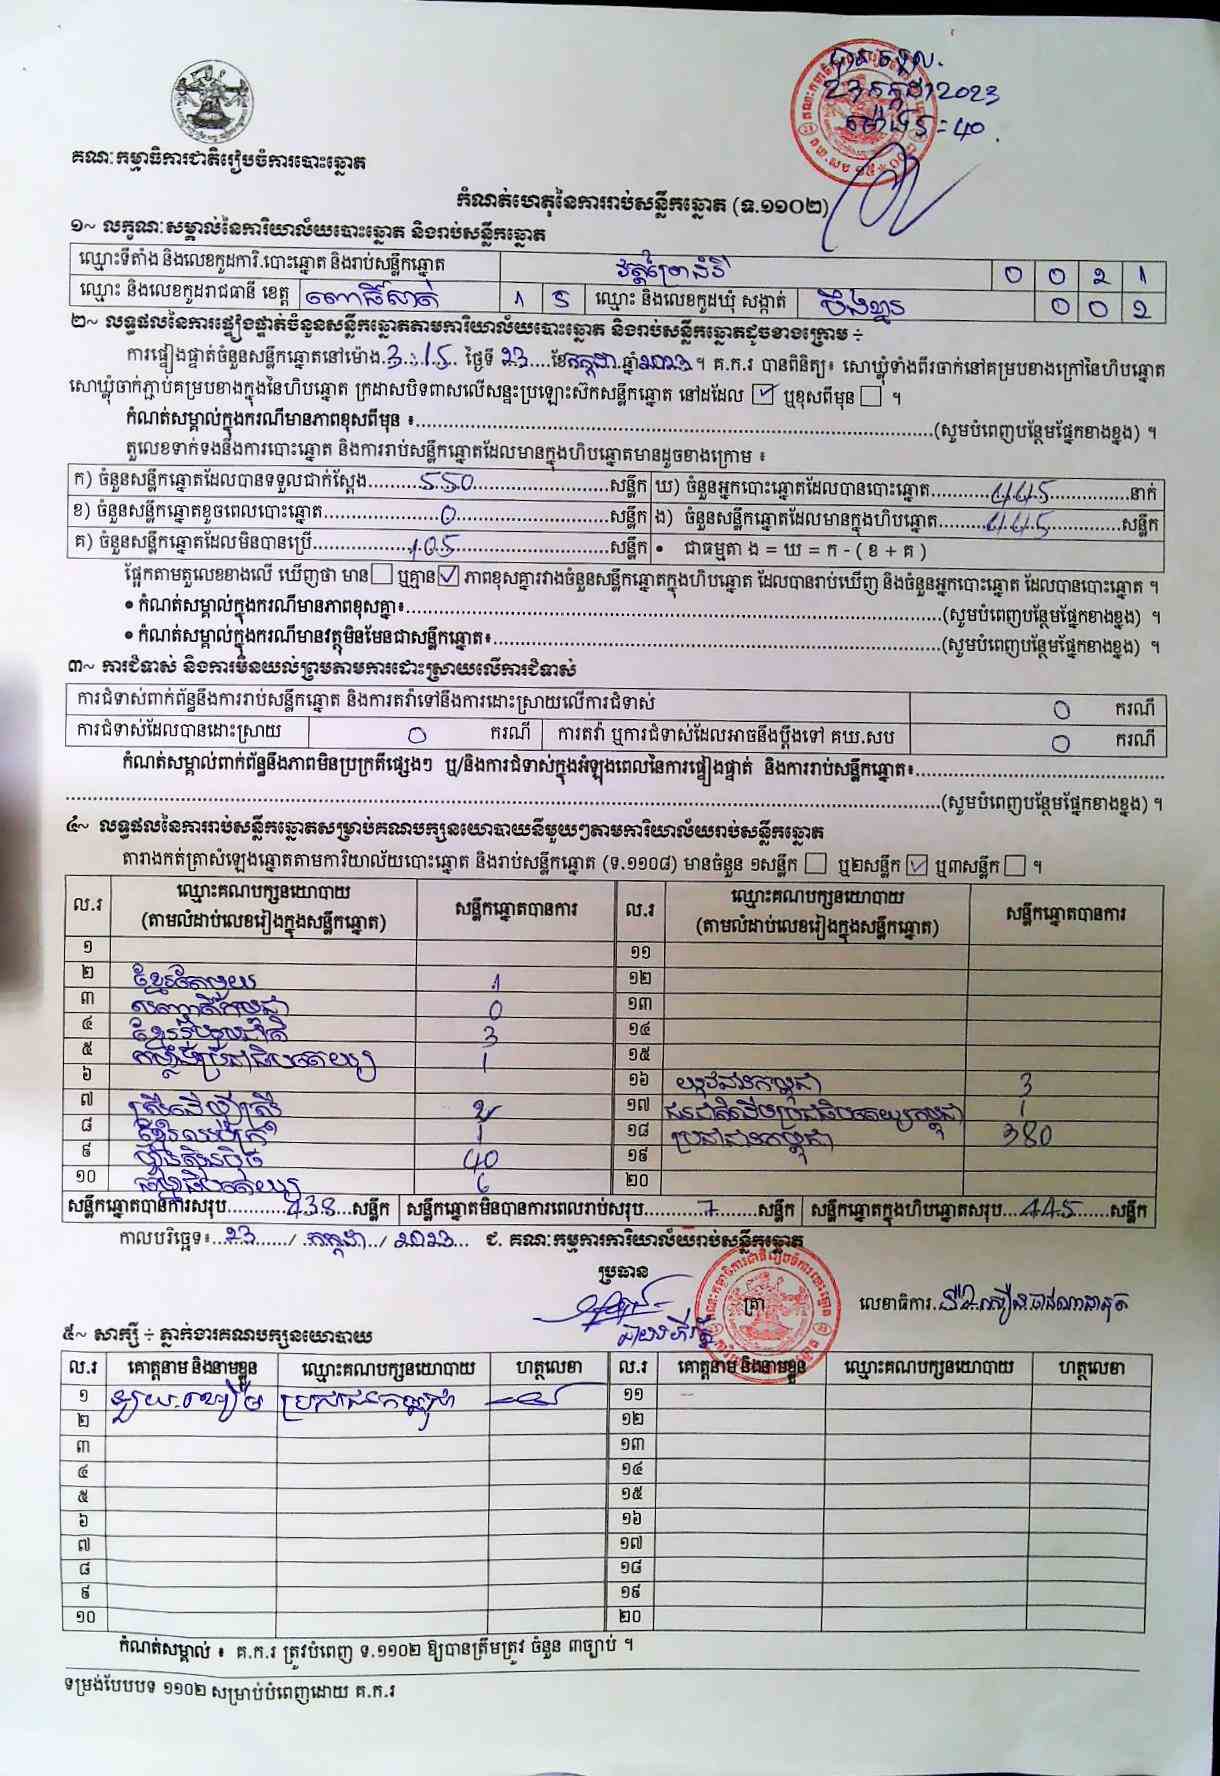 បានទទួល
23 កក្កដា 2023
គណៈកម្មាធិការជាតិរៀបចំការបោះឆ្នោត
កំណត់ហេតុនៃការរាប់សន្លឹកឆ្នោត (ទ.១១០២)
១~ លក្ខណៈសម្គាល់នៃការិយាល័យបោះឆ្នោត និងរាប់សន្លឹកឆ្នោត
ឈ្មោះទីតាំង និងលេខកូដការិ.បោះឆ្នោត និងរាប់សន្លឹកឆ្នោត 0 0 2 1
ឈ្មោះ និងលេខកូដរាជធានី ខេត្ត ពោធិ៍សាត់ 1 5 ឈ្មោះ និងលេខកូដឃុំ សង្កាត់ បឹងខ្នារ 0 0 2
២~ លទ្ធផលនៃការផ្ទៀងផ្ទាត់ចំនួនសន្លឹកឆ្នោតតាមការិយាល័យបោះឆ្នោត និងរាប់សន្លឹកឆ្នោតដូចខាងក្រោម ÷
ការផ្ទៀងផ្ទាត់ចំនួនសន្លឹកឆ្នោតនៅម៉ោង 3:15 ថ្ងៃទី 23 ខែ កក្កដា ឆ្នាំ 2023 ។ គ.ក.រ បានពិនិត្យ៖ សោឃ្លុំទាំងពីរចាក់នៅគម្របខាងក្រៅនៃហិបឆ្នោត
សោឃ្លុំចាក់ភ្ជាប់គម្របខាងក្នុងនៃហិបឆ្នោត ក្រដាសបិទពាសលើសន្ទះប្រឡោះស៊កសន្លឹកឆ្នោត នៅដដែល ☑ ឬខុសពីមុន ☐ ។
កំណត់សម្គាល់ក្នុងករណីមានភាពខុសពីមុន ៖ (សូមបំពេញបន្ថែមផ្នែកខាងខ្នង) ។
តួលេខទាក់ទងនឹងការបោះឆ្នោត និងការរាប់សន្លឹកឆ្នោតដែលមានក្នុងហិបឆ្នោតមានដូចខាងក្រោម ៖
ក) ចំនួនសន្លឹកឆ្នោតដែលបានទទួលជាក់ស្តែង 550 សន្លឹក ឃ) ចំនួនអ្នកបោះឆ្នោតដែលបានបោះឆ្នោត 445 នាក់
ខ) ចំនួនសន្លឹកឆ្នោតខូចពេលបោះឆ្នោត 0 សន្លឹក ង) ចំនួនសន្លឹកឆ្នោតដែលមានក្នុងហិបឆ្នោត 445 សន្លឹក
គ) ចំនួនសន្លឹកឆ្នោតដែលមិនបានប្រើ 105 សន្លឹក • ជាធម្មតា ង = ឃ = ក - ( ខ + គ )
ផ្អែកតាមតួលេខខាងលើ ឃើញថា មាន ☐ ឬគ្មាន ☑ ភាពខុសគ្នារវាងចំនួនសន្លឹកឆ្នោតក្នុងហិបឆ្នោត ដែលបានរាប់ឃើញ និងចំនួនអ្នកបោះឆ្នោត ដែលបានបោះឆ្នោត ។
• កំណត់សម្គាល់ក្នុងករណីមានភាពខុសគ្នា៖ (សូមបំពេញបន្ថែមផ្នែកខាងខ្នង) ។
• កំណត់សម្គាល់ក្នុងករណីមានវត្ថុមិនមែនជាសន្លឹកឆ្នោត៖ (សូមបំពេញបន្ថែមផ្នែកខាងខ្នង) ។
៣~ ការជំទាស់ និងការមិនយល់ព្រមតាមការដោះស្រាយលើការជំទាស់
ការជំទាស់ពាក់ព័ន្ធនឹងការរាប់សន្លឹកឆ្នោត និងការតវ៉ាទៅនឹងការដោះស្រាយលើការជំទាស់ 0 ករណី
ការជំទាស់ដែលបានដោះស្រាយ 0 ករណី ការតវ៉ា ឬការជំទាស់ដែលអាចនឹងប្តឹងទៅ គឃ.សប 0 ករណី
កំណត់សម្គាល់ពាក់ព័ន្ធនឹងភាពមិនប្រក្រតីផ្សេងៗ ឬ/និងការជំទាស់ក្នុងអំឡុងពេលនៃការផ្ទៀងផ្ទាត់ និងការរាប់សន្លឹកឆ្នោត៖
(សូមបំពេញបន្ថែមផ្នែកខាងខ្នង) ។
៤~ លទ្ធផលនៃការរាប់សន្លឹកឆ្នោតសម្រាប់គណបក្សនយោបាយនីមួយៗតាមការិយាល័យរាប់សន្លឹកឆ្នោត
តារាងកត់ត្រាសំឡេងឆ្នោតតាមការិយាល័យបោះឆ្នោត និងរាប់សន្លឹកឆ្នោត (ទ.១១០៨) មានចំនួន ១សន្លឹក ☐ ឬ២សន្លឹក ☑ ឬ៣សន្លឹក ☐ ។
ល.រ ឈ្មោះគណបក្សនយោបាយ (តាមលំដាប់លេខរៀងក្នុងសន្លឹកឆ្នោត) សន្លឹកឆ្នោតបានការ ល.រ ឈ្មោះគណបក្សនយោបាយ (តាមលំដាប់លេខរៀងក្នុងសន្លឹកឆ្នោត) សន្លឹកឆ្នោតបានការ
១ ១១
២ ខ្មែរតែមួយ 1 ១២
៣ សញ្ជាតិកម្ពុជា 0 ១៣
៤ ខ្មែររួបរួមជាតិ 3 ១៤
៥ កម្លាំងប្រជាធិបតេយ្យ 1 ១៥
៦ ១៦ យុវជនកម្ពុជា 3
៧ ស្ត្រីដើម្បីស្ត្រី 2 ១៧ ជនជាតិដើមប្រជាធិបតេយ្យកម្ពុជា 1
៨ 1 ១៨ ប្រជាជនកម្ពុជា 380
៩ ហ្វ៊ុនស៊ិនប៉ិច 40 ១៩
១០ 6 ២០
សន្លឹកឆ្នោតបានការសរុប 438 សន្លឹក សន្លឹកឆ្នោតមិនបានការពេលរាប់សរុប 7 សន្លឹក សន្លឹកឆ្នោតក្នុងហិបឆ្នោតសរុប 445 សន្លឹក
កាលបរិច្ឆេទ៖ 23 / កក្កដា / 2023 ជ. គណៈកម្មការការិយាល័យរាប់សន្លឹកឆ្នោត
ប្រធាន
ត្រា លេខាធិការ
៥~ សាក្សី ÷ ភ្នាក់ងារគណបក្សនយោបាយ
ល.រ គោត្តនាម និងនាមខ្លួន ឈ្មោះគណបក្សនយោបាយ ហត្ថលេខា ល.រ គោត្តនាម និងនាមខ្លួន ឈ្មោះគណបក្សនយោបាយ ហត្ថលេខា
១ ប្រជាជនកម្ពុជា ១១
២ ១២
៣ ១៣
៤ ១៤
៥ ១៥
៦ ១៦
៧ ១៧
៨ ១៨
៩ ១៩
១០ ២០
កំណត់សម្គាល់ ៖ គ.ក.រ ត្រូវបំពេញ ទ.១១០២ ឱ្យបានត្រឹមត្រូវ ចំនួន ៣ច្បាប់ ។
ទម្រង់បែបបទ ១១០២ សម្រាប់បំពេញដោយ គ.ក.រ